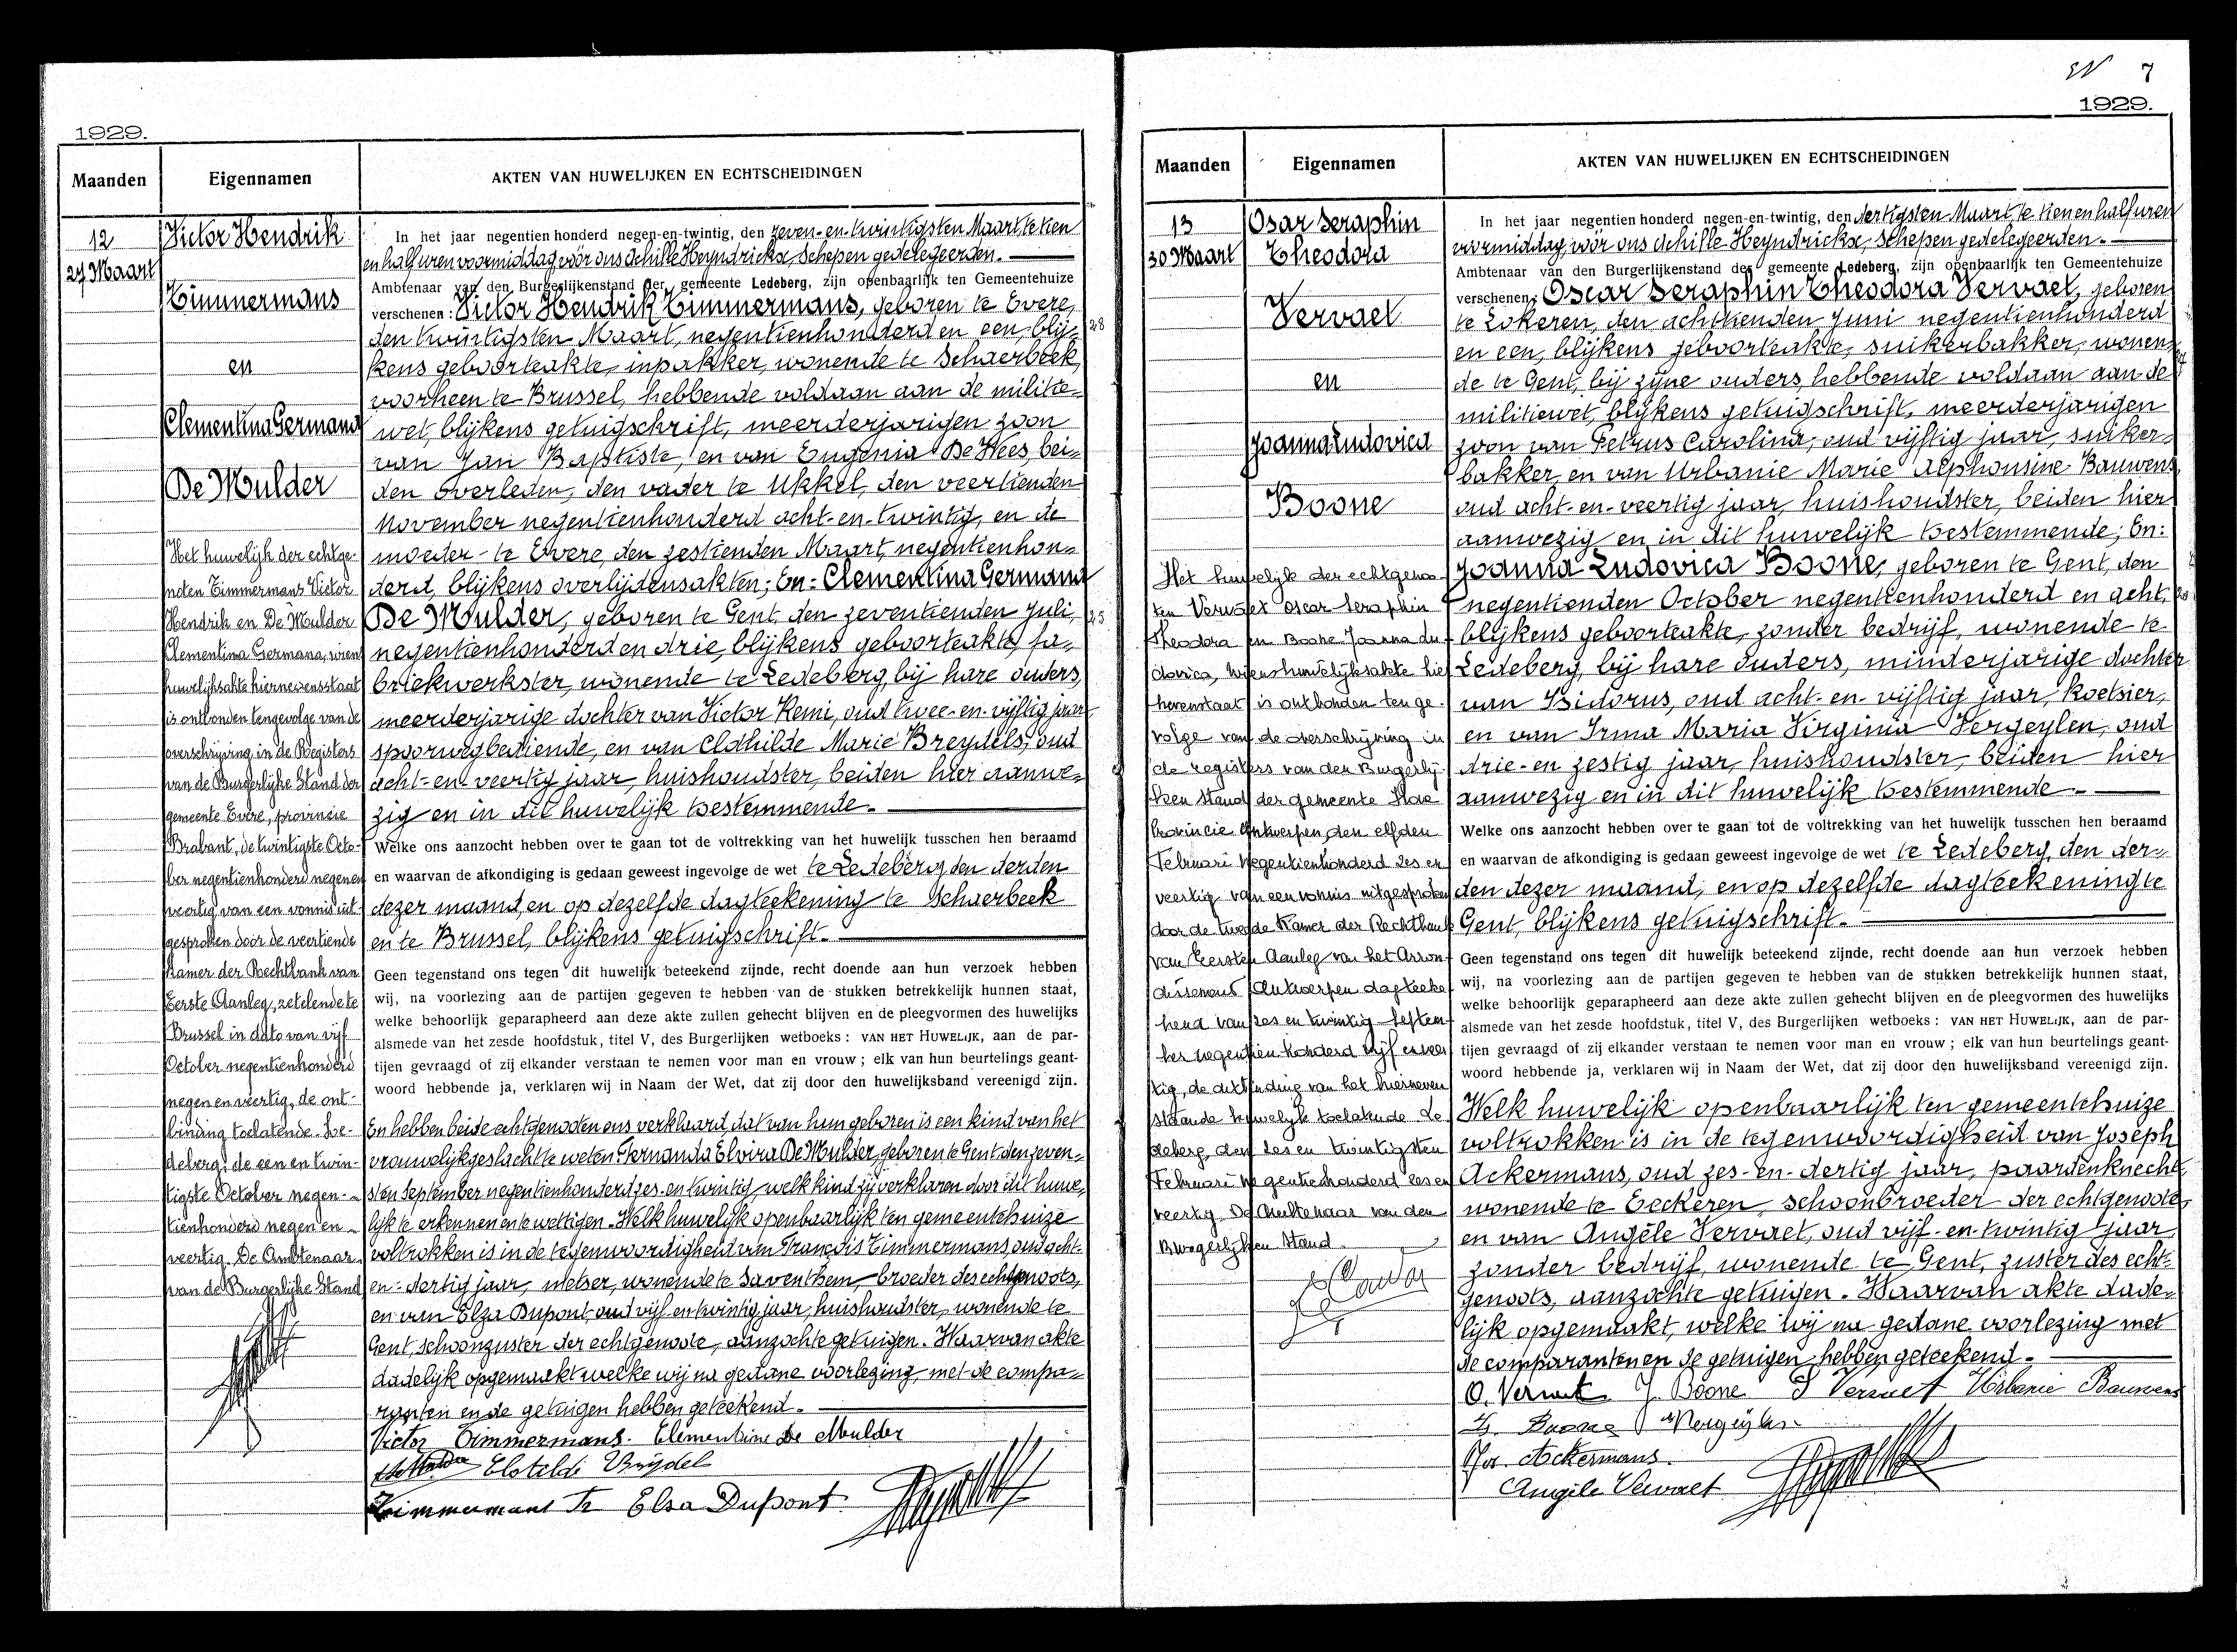 1929.
Maanden
Eigennamen
AKTEN VAN HUWELIJKEN EN ECHTSCHEIDINGEN
12
27 Maart
Victor Hendrik
Timmermans
en
Clementina Germana
De Mulder
Het huwelijk der echtge-
nooten Timmermans Victor
Hendrik en De Mulder
Clementina Germana, wiens
huwelijksakte hiernevensstaat
is ontbonden tengevolge van de
overschrijving in de Registers
van de Burgerlijke Stand der
gemeente Evere, provincie
Brabant, de twintigste Octo-
ber negentienhonderd negenen
veertig van een vonnis uit-
gesproken door de veertiende
Kamer der Rechtbank van
Eerste Aanleg, zetelende te
Brussel in dato van vijf
October negentienhonderd
negen en veertig, de ont-
binding toelatende. Le-
deberg, de een en twin-
tigste October negen-
tienhonderd negen en
veertig. De Ambtenaar
van de Burgerlijke Stand
In het jaar negentien honderd negen-en-twintig, den zeven-en-twintigsten Maart, te tien
en half uren voormiddag vóór ons Achille Heyndrickx, Schepen gedelegeerden.
Ambtenaar van den Burgerlijkenstand der gemeente Ledeberg, zijn openbaarlijk ten Gemeentehuize
verschenen: Victor Hendrik Timmermans, geboren te Evere,
den twintigsten Maart, negentienhonderd en een, blij- 28
kens geboorteakte, inpakker, wonende te Schaerbeek,
voorheen te Brussel, hebbende voldaan aan de militie-
wet, blijkens getuigschrift, meerderjarigen zoon
van Jan Baptiste, en van Eugenia De Hees, bei-
den overleden, den vader te Ukkel, den veertienden
November negentienhonderd acht-en-twintig, en de
moeder te Evere, den zestienden Maart, negentienhon-
derd, blijkens overlijdensakten; En: Clementina Germana
De Mulder, geboren te Gent, den zeventienden Juli, 25
negentienhonderd en drie, blijkens geboorteakte, fa-
briekwerkster, wonende te Ledeberg, bij hare ouders,
meerderjarige dochter van Victor Remi, oud twee-en-vijftig jaar
spoorwegbediende, en van Clothilde Marie Breydels, oud
acht-en-veertig jaar, huishoudster, beiden hier aanwe-
zig en in dit huwelijk bestemmende.
Welke ons aanzocht hebben over te gaan tot de voltrekking van het huwelijk tusschen hen beraamd
en waarvan de afkondiging is gedaan geweest ingevolge de wet te Ledeberg, den derden
dezer maand, en op dezelfde dagteekening te Schaerbeek
en te Brussel, blijkens getuigschrift.
Geen tegenstand ons tegen dit huwelijk beteekend zijnde, recht doende aan hun verzoek hebben
wij, na voorlezing aan de partijen gegeven te hebben van de stukken betrekkelijk hunnen staat,
welke behoorlijk geparapheerd aan deze akte zullen gehecht blijven en de pleegvormen des huwelijks
alsmede van het zesde hoofdstuk, titel V, des Burgerlijken wetboeks: VAN HET HUWELIJK, aan de par-
tijen gevraagd of zij elkander verstaan te nemen voor man en vrouw; elk van hun beurtelings geant-
woord hebbende ja, verklaren wij in Naam der Wet, dat zij door den huwelijksband vereenigd zijn.
En hebben beide echtgenooten ons verklaard, dat van hun geboren is een kind van het
vrouwelijk geslacht te weten: Fernanda Elvira De Mulder, geboren te Gent, den zeven-
sten September negentienhonderd zes-en-twintig, welk kind zij verklaren door dit huwe-
lijk te erkennen en te wettigen. Welk huwelijk openbaarlijk ten gemeentehuize
voltrokken is in de tegenwoordigheid van François Timmermans, oud acht-
en-dertig jaar, metser, wonende te Saventhem, broeder des echtgenoots,
en van Elza Dupont, oud vijf-en-twintig jaar, huishoudster, wonende te
Gent, schoonzuster der echtgenoote, aanzochte getuigen. Waarvan akte
dadelijk opgemaakt welke wij na gedane voorlezing met de compa-
ranten en de getuigen hebben geteekend.
Victor Timmermans. Clementine De Mulder
Clotilde Brijdel
Timmermans Fr Elsa Dupont
7
1929.
Maanden
Eigennamen
AKTEN VAN HUWELIJKEN EN ECHTSCHEIDINGEN
13
30 Maart
Osar Seraphin
Theodora
Vervaet
en
Joanna Ludovica
Boone
Het huwelijk der echtgenoo-
ten Vervaet Oscar Seraphin
Theodora en Boone Joanna Lu-
dovica, wiens huwelijksakte hier
nevenstaat is ontbonden ten ge-
volge van de overschrijving in
de registers van den Burgerlij-
ken Stand der gemeente
Provincie Antwerpen, den elfden
Februari negentienhonderd zes en
veertig van een vonnis uitgesproken
door de tweede Kamer der Rechtbank
van Eersten Aanleg van het Arron-
dissement Antwerpen dagteeke-
nend van zes en twintig Septem-
ber negentien honderd vijf en veer-
tig, de ontbinding van het hierneven
staande huwelijk toelatende. Le-
deberg, den zes en twintigsten
Februari negentienhonderd zes en
veertig. De Ambtenaar van den
Burgerlijken Stand
In het jaar negentien honderd negen-en-twintig, den dertigsten Maart, te tien en half uren
voormiddag, vóór ons Achille Heyndrickx, Schepen gedelegeerden.
Ambtenaar van den Burgerlijkenstand der gemeente Ledeberg, zijn openbaarlijk ten Gemeentehuize
verschenen: Oscar Seraphin Theodora Vervaet, geboren
te Lokeren, den achttienden Juni negentienhonderd
en een, blijkens geboorteakte, suikerbakker, wonen-
de te Gent, bij zijne ouders, hebbende voldaan aan de
militiewet, blijkens getuigschrift, meerderjarigen
zoon van Petrus Carolina, oud vijftig jaar, suiker-
bakker, en van Urbanie Marie Alphonsine Bauwens,
oud acht-en-veertig jaar, huishoudster, beiden hier
aanwezig en in dit huwelijk bestemmende; En:
Joanna Ludovica Boone, geboren te Gent, den
negentienden October negentienhonderd en acht,
blijkens geboorteakte, zonder bedrijf, wonende te
Ledeberg, bij hare ouders, minderjarige dochter
van Isidorus, oud acht-en-vijftig jaar, koetsier,
en van Irma Maria Virginia Vergeylen, oud
drie-en-zestig jaar, huishoudster, beiden hier
aanwezig en in dit huwelijk bestemmende.
Welke ons aanzocht hebben over te gaan tot de voltrekking van het huwelijk tusschen hen beraamd
en waarvan de afkondiging is gedaan geweest ingevolge de wet te Ledeberg, den der-
den dezer maand, en op dezelfde dagteekening te
Gent, blijkens getuigschrift.
Geen tegenstand ons tegen dit huwelijk beteekend zijnde, recht doende aan hun verzoek hebben
wij, na voorlezing aan de partijen gegeven te hebben van de stukken betrekkelijk hunnen staat,
welke behoorlijk geparapheerd aan deze akte zullen gehecht blijven en de pleegvormen des huwelijks
alsmede van het zesde hoofdstuk, titel V, des Burgerlijken wetboeks: VAN HET HUWELIJK, aan de par-
tijen gevraagd of zij elkander verstaan te nemen voor man en vrouw; elk van hun beurtelings geant-
woord hebbende ja, verklaren wij in Naam der Wet, dat zij door den huwelijksband vereenigd zijn.
Welk huwelijk openbaarlijk ten gemeentehuize
voltrokken is in de tegenwoordigheid van Joseph
Ackermans, oud zes-en-dertig jaar, paardenknecht,
wonende te Eeckeren, schoonbroeder der echtgenoote,
en van Angèle Vervaet, oud vijf-en-twintig jaar,
zonder bedrijf, wonende te Gent, zuster des echt-
genoots, aanzochte getuigen. Waarvan akte dade-
lijk opgemaakt, welke wij na gedane voorlezing met
de comparanten en de getuigen hebben geteekend.
O. Vervaet J. Boone P Vervaet Urbanie Bauwens
Is. Boone Vergeylen
Jos. Ackermans.
Angèle Vervaet